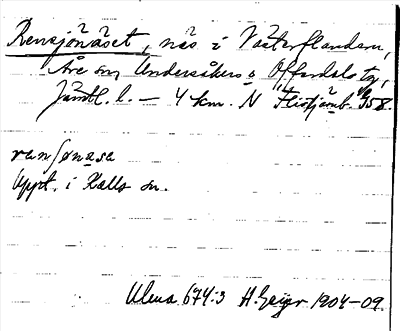 Rensjönäset, näs i Västerflandern,
Åre sn Undersåkers o Offerdals tg,
Jämtl. l. — 4 km. N
ransønase
Uppt. i Kalls sn.
Ulma 674:3 H. Geijer 1904-09.